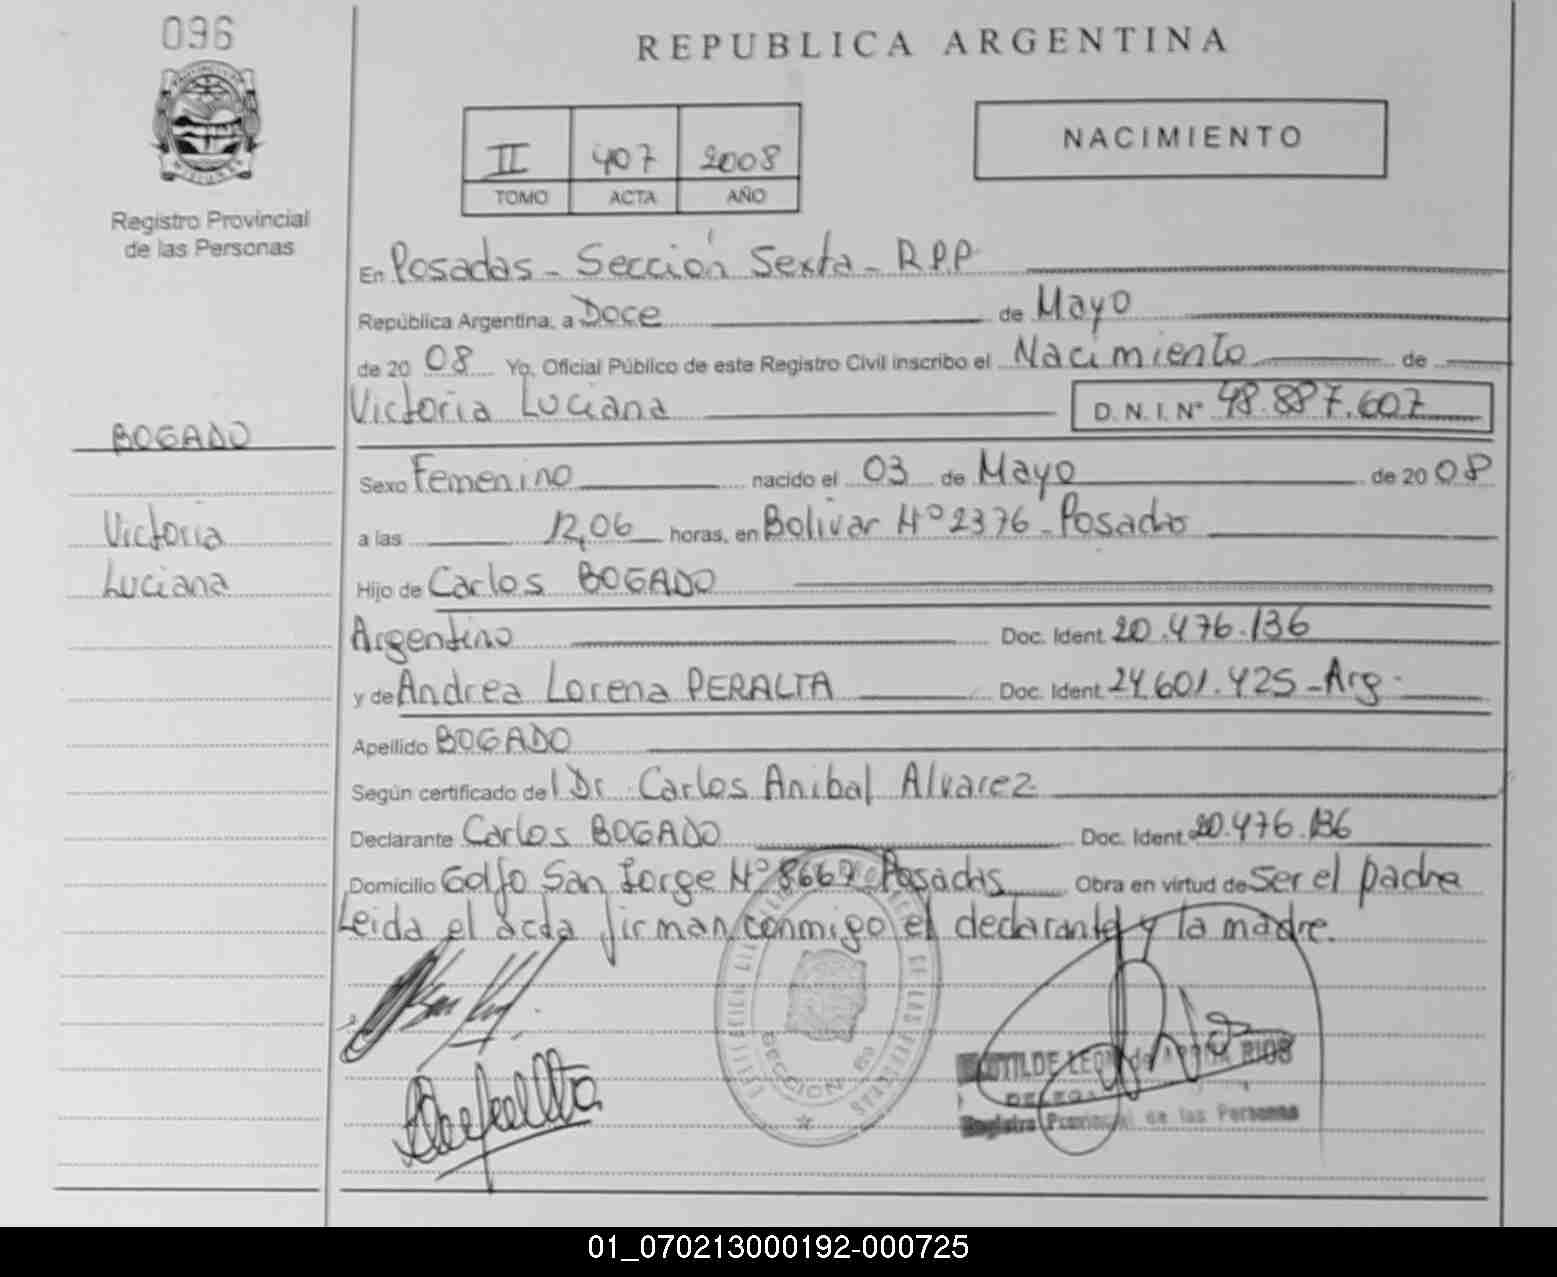 096
REPUBLICA ARGENTINA
NACIMIENTO
II 407 2008
TOMO ACTA AÑO
Registro Provincial
de las Personas
En Posadas - Sección Sexta - R.P.P
República Argentina, a Doce de Mayo
de 20 08 Yo, Oficial Público de este Registro Civil inscribo el Nacimiento de
Victoria Luciana D.N.I. Nº 48.887.607
BOGADO
Sexo Femenino nacido el 03 de Mayo de 20 08
Victoria
a las 12,06 horas, en Bolivar Nº 2376 - Posadas
Luciana
Hijo de Carlos BOGADO
Argentino Doc. Ident. 20.476.136
y de Andrea Lorena PERALTA Doc. Ident. 24.601.425 - Arg.
Apellido BOGADO
Según certificado del Dr. Carlos Anibal Alvarez
Declarante Carlos BOGADO Doc. Ident. 20.476.136
Domicilio Golfo San Jorge Nº 8667 Posadas Obra en virtud de ser el padre
Leida el acta firman conmigo el declarante y la madre.
DE LAS PERSONAS
SECCION 6a
CLOTILDE LEON de RIOS
Registro Provincial de las Personas
01_070213000192-000725